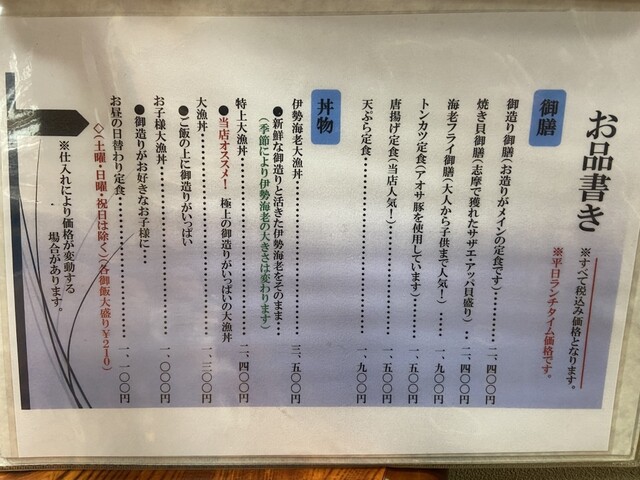 お品書き
※すべて税込み価格となります。
※平日ランチタイム価格です。
御膳
御造り御膳(お造りがメインの定食です)‥‥‥‥二、四〇〇円
焼き貝御膳(志摩で獲れたサザエ・アッパ貝盛り)‥二、四〇〇円
海老フライ御膳(大人から子供まで人気!)‥‥一、九〇〇円
トンカツ定食(アオサ豚を使用しています)‥‥‥一、五〇〇円
唐揚げ定食(当店人気!)‥‥‥‥‥‥‥一、五〇〇円
天ぷら定食‥‥‥‥‥‥‥‥‥‥一、九〇〇円
丼物
伊勢海老大漁丼‥‥‥‥‥‥‥‥‥‥三、五〇〇円
●新鮮な御造りと活きた伊勢海老をそのまま
(季節により伊勢海老の大きさは変わります)
特上大漁丼‥‥‥‥‥‥‥‥‥‥二、四〇〇円
●当店オススメ! 極上の御造りがいっぱいの大漁丼
大漁丼‥‥‥‥‥‥‥‥‥‥‥‥一、三〇〇円
●ご飯の上に御造りがいっぱい
お子様大漁丼‥‥‥‥‥‥‥‥‥‥一、〇〇〇円
●御造りがお好きなお子様に‥
お昼の日替わり定食‥‥‥‥‥‥‥‥一、一〇〇円
◇(土曜・日曜・祝日は除く)(各御飯大盛り¥210)
※仕入れにより価格が変動する
場合があります。